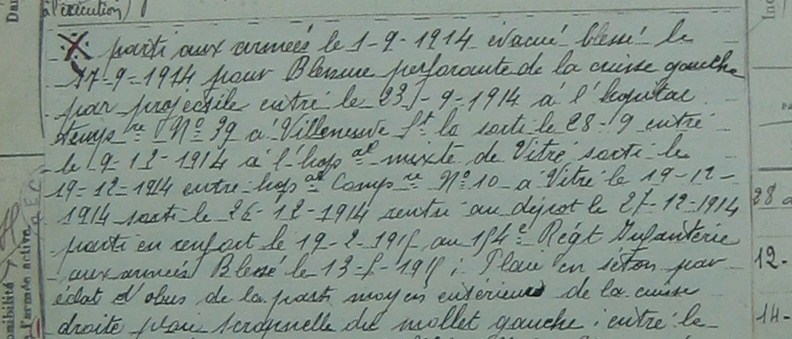 à l'exécution)
parti aux armées le 1-9-1914 évacué blessé le
17-9-1914 pour Blessure perforante de la cuisse gauche
par projectile entré le 23-9-1914 à l'hopital
temp re No 39 à Villeneuve St lo sorti le 28-9 entré
le 9-12-1914 à l'hop al mixte de Vitré sorti le
19-12-1914 entre hop al Comp re No 10 à Vitré le 19-12-
1914 sorti le 26-12-1914 rentré au dépot le 27-12-1914
parti en renfort le 19-2-1915 au 154e Régt Infanterie
aux armées Blessé le 13-5-1915; Plaie en seton par
éclat d'obus de la parti moyen extérieure de la cuisse
droite plaie scrapnelle du mollet gauche; entré le
28
12-
14-
l'armée active